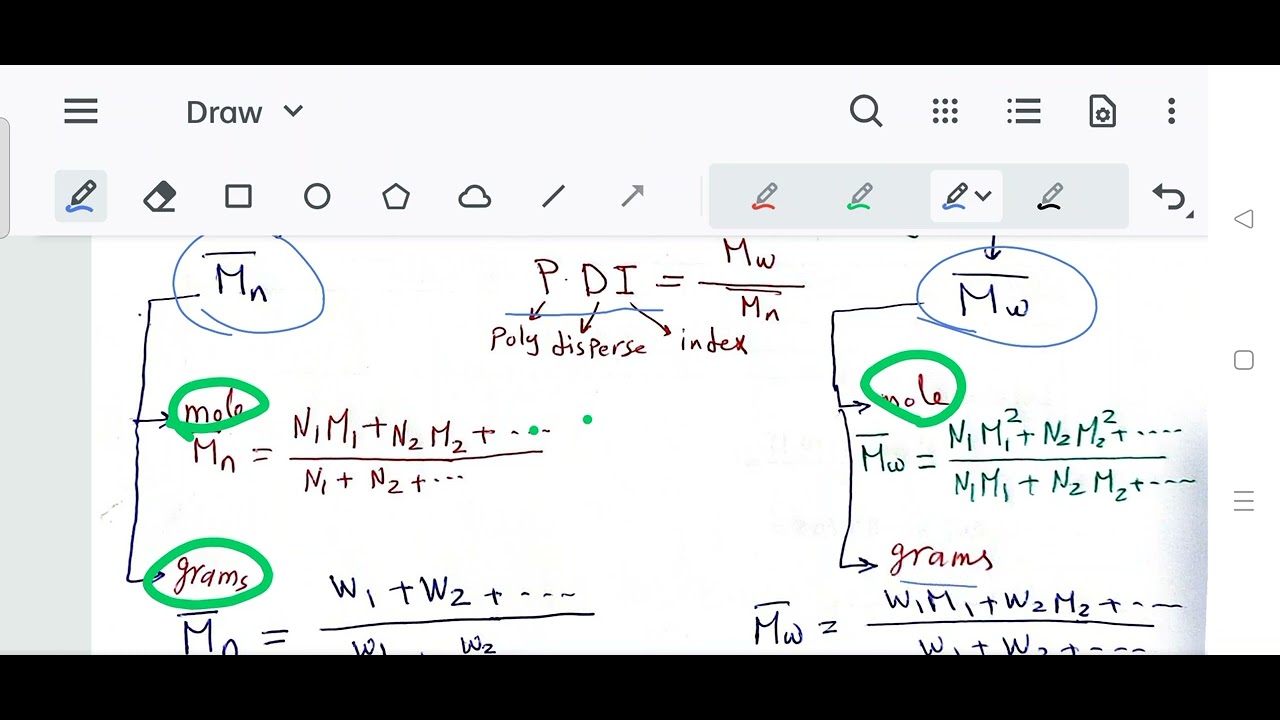 Draw
M̅n
P.DI = M̅w / M̅n
M̅w
Poly disperse index
mole
mole
M̅n = N₁M₁ + N₂M₂ + ... / N₁ + N₂ + ...
M̅w = N₁M₁² + N₂M₂² + .... / N₁M₁ + N₂M₂ + ...
grams
grams
M̅n = W₁ + W₂ + .... / W₁ W₂
M̅w = W₁M₁ + W₂M₂ + ... / W₁ + W₂ + ...